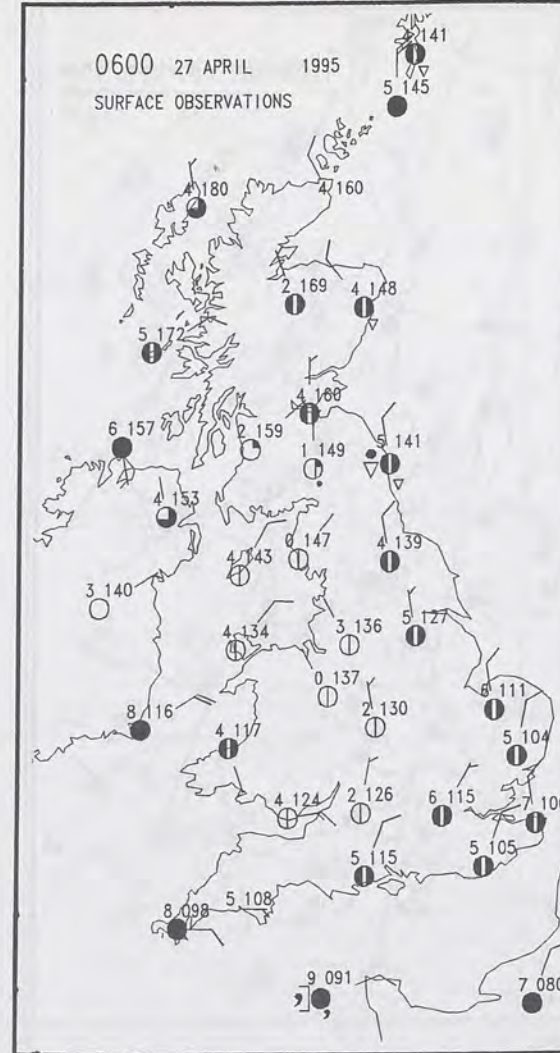 0600 27 APRIL 1995
SURFACE OBSERVATIONS
141
5 145
4 180
4 160
2 169
4 148
5 172
4 160
6 157
2 159
1 149
5 141
4 153
4 143
0 147
4 139
3 140
4 134
3 136
5 127
0 137
8 116
2 130
6 111
4 117
5 104
4 124
2 126
6 115
7 100
5 115
5 105
5 108
8 098
9 091
7 080